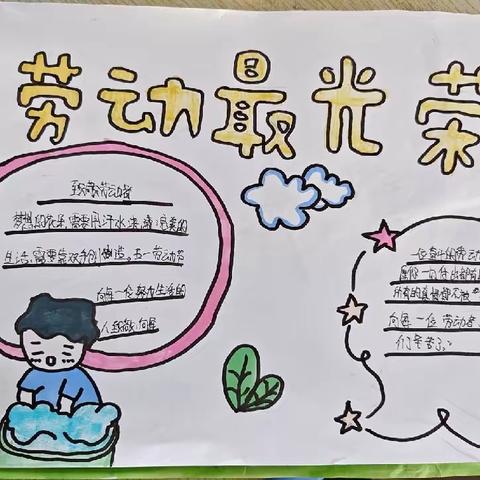 劳动最光荣
致敬劳动者
梦想的花朵,需要用汗水来浇灌,完美的
生活,需要靠双手创造。五一劳动节
向每一位努力生活的
人致敬
一位奋斗的劳动
愿你一切付出都有
所有的真都不被
向每一位劳动者
们辛苦了。